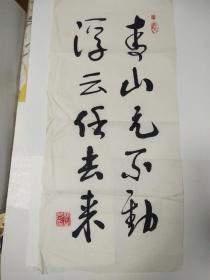 青山元不動
浮云任去来